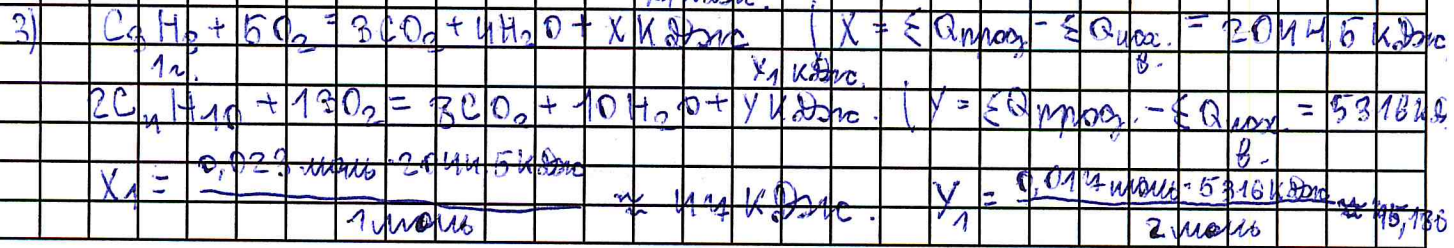 3) C3H8 + 5O2 = 3CO2 + 4H2O + X кДж | X = ΣQпрод. - ΣQисх. в. = 2044,5 кДж
1г. X1 кДж.
2C4H10 + 13O2 = 8CO2 + 10H2O + Y кДж. | Y = ΣQпрод. - ΣQисх. в. = 5316 кДж
X1 = 0,023 моль · 2044,5 кДж / 1 моль ≈ 47 кДж. Y1 = 0,017 моль · 5316 кДж / 2 моль ≈ 45,186